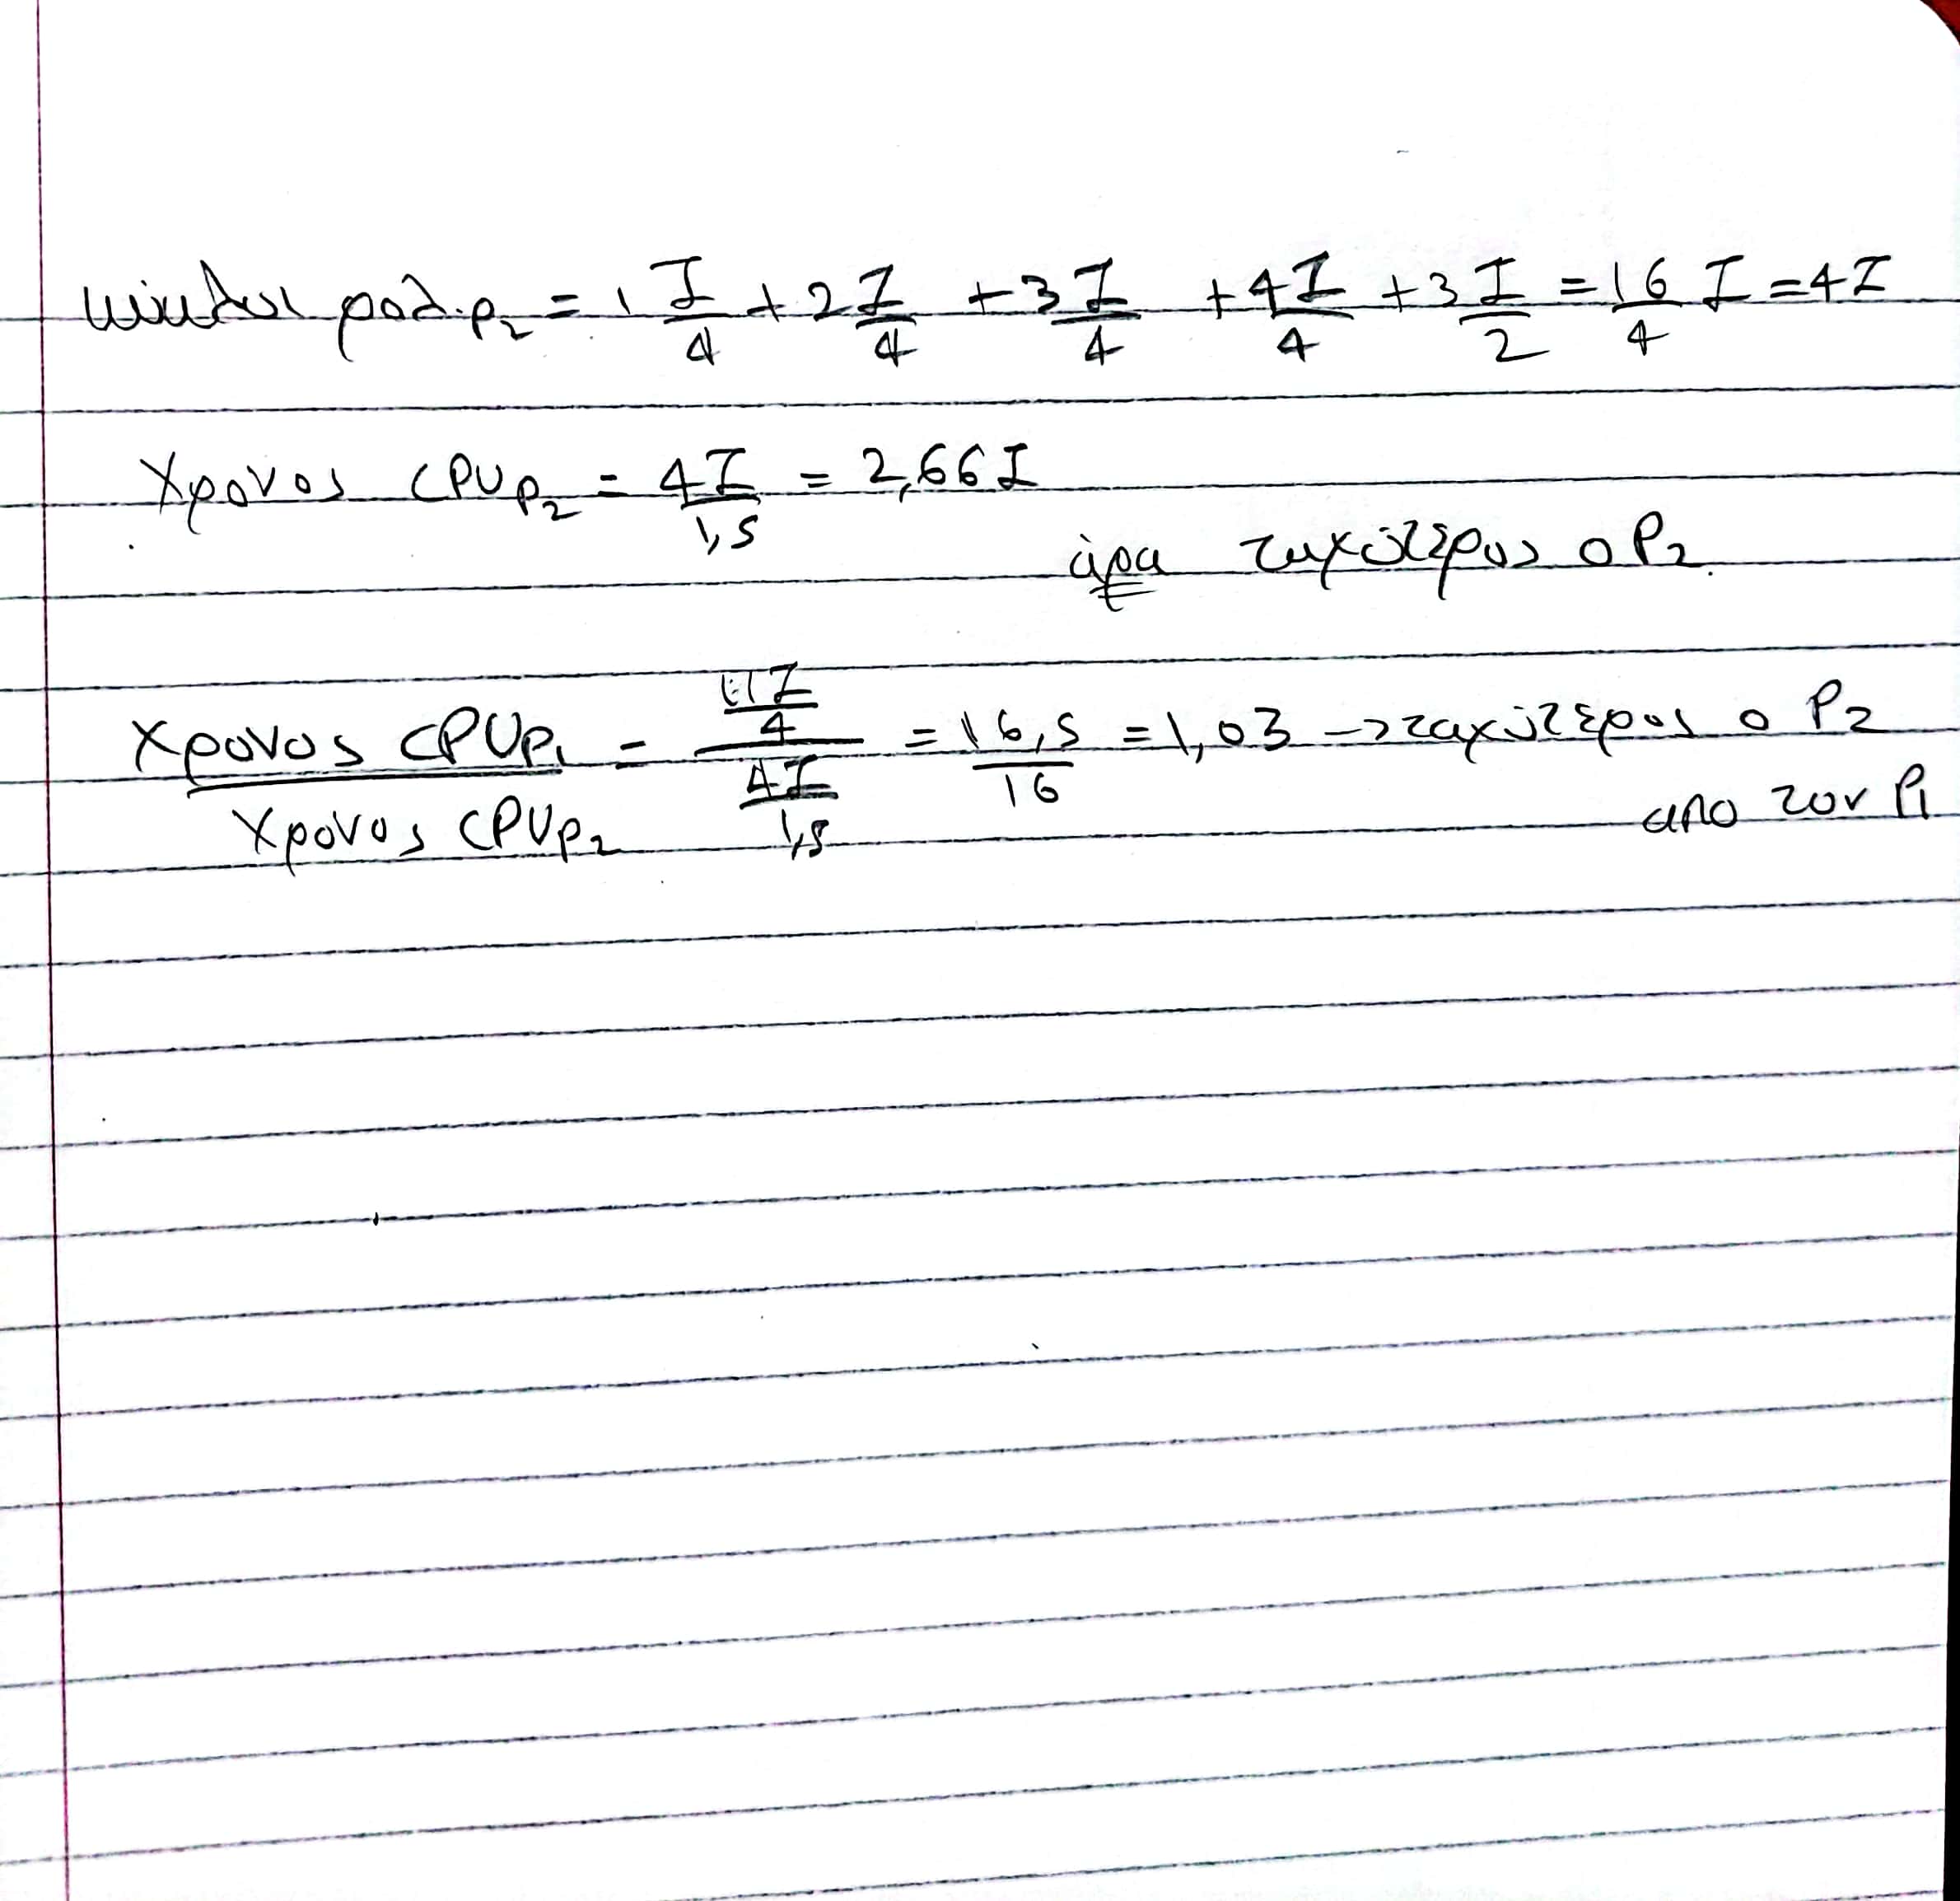 κύκλοι ρολ.P₂ = 1 I/4 + 2 I/4 + 3 I/4 + 4 I/4 + 3 I/2 = 16/4 I = 4I
Χρονος CPU P₂ = 4I/1,5 = 2,66 I
άρα ταχύτερος ο P₂.
Χρονος CPU P₁ / Χρονος CPU P₂ = (11I/4) / (4I/1,5) = 16,5/16 = 1,03 -> ταχύτερος ο P₂
απο τον P₁